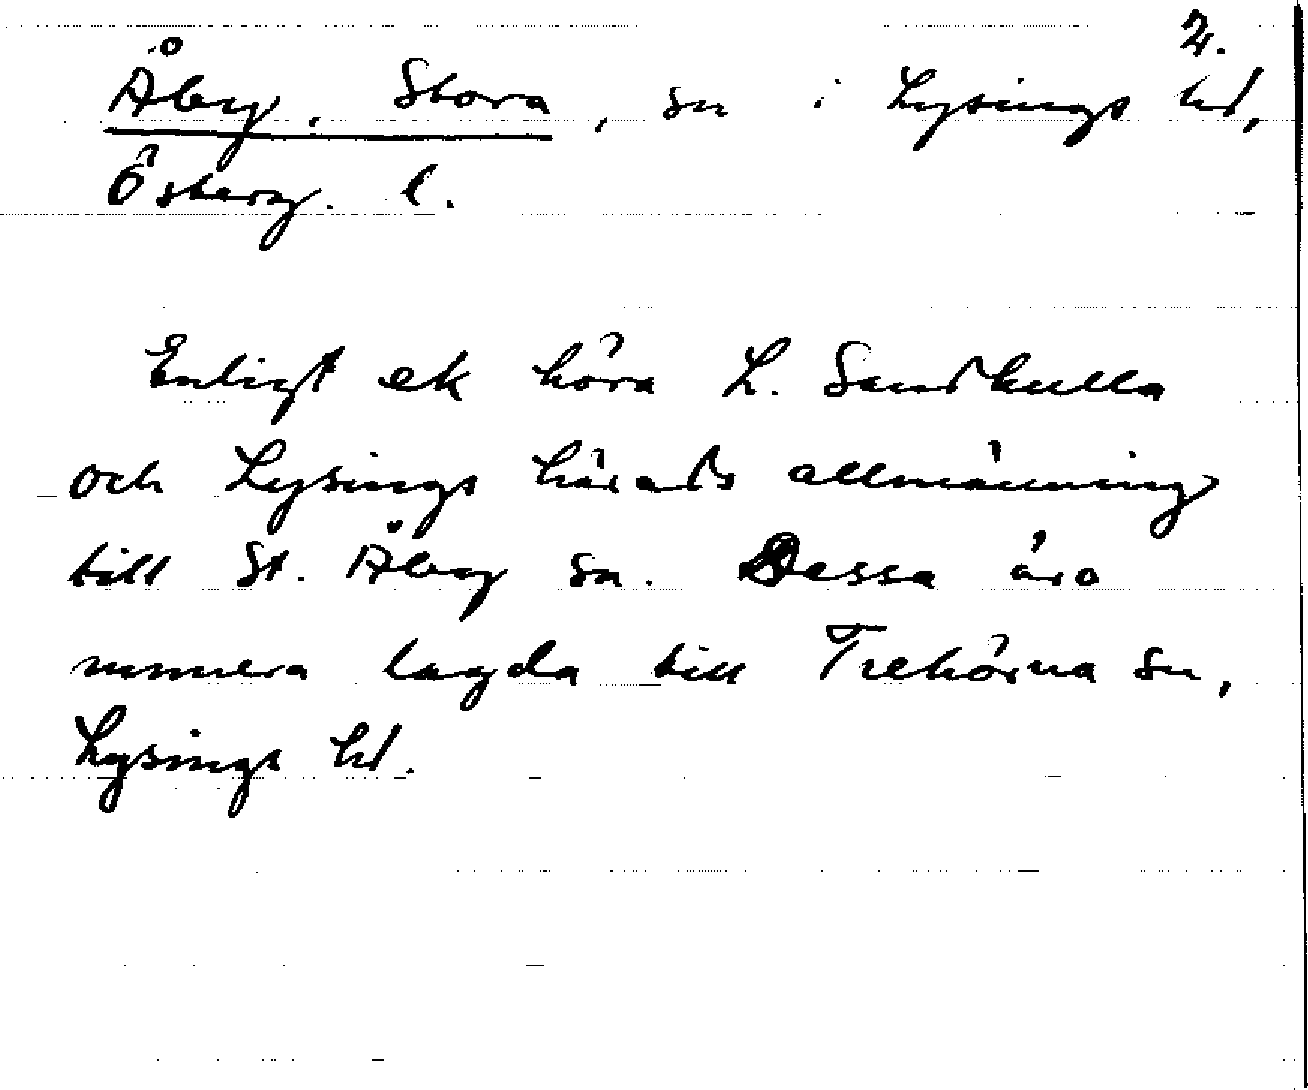 2.
Åby, Stora, sn i Lysings hd,
Österg. l.
Enligt ek höra L. Sandkulla
och Lysings härads allmänning
till St. Åby sn. Dessa äro
numera lagda till Trehörna sn,
Lysings hd.